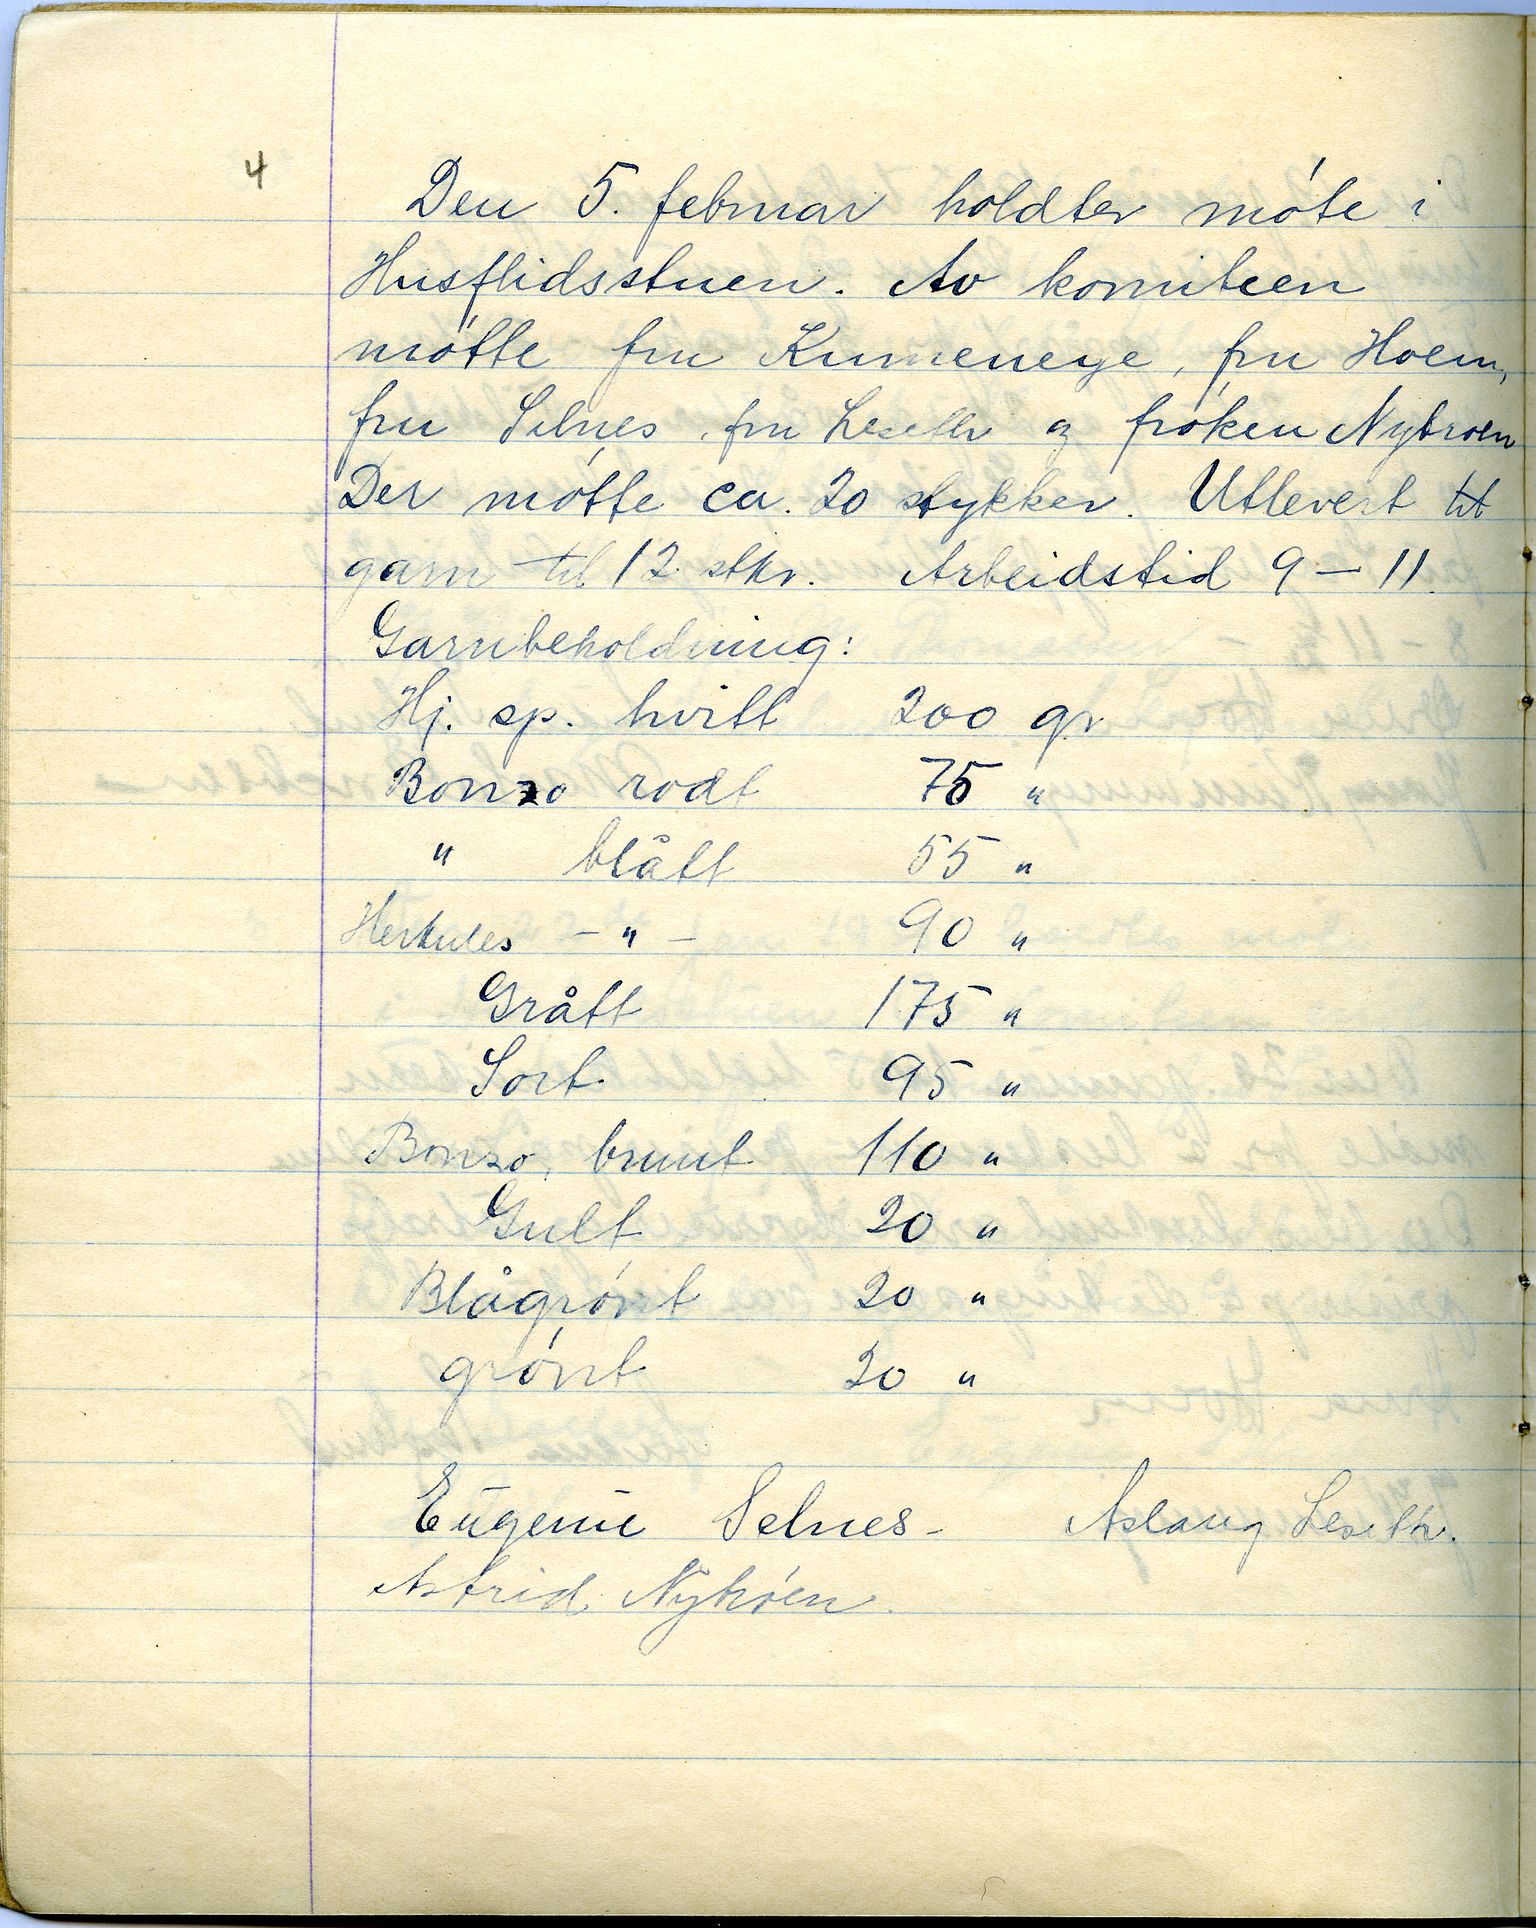 4
Den 5. februar holdtes møte i
Husflidsstuen. Av komiteen
møtte fru Kumeneye, fru Hoem,
fru Selnes, fru Leseth og frøken Nybroen
Der møtte ca. 20 stykker. Utlevert
garn til 12 stkr. Arbeidstid 9 – 11.
Garnbeholdning:
Hj. sp. hvitt 200 gr
Bonzo rødt 75 "
" blått 55 "
Herkules – " – 90 "
Grått 175 "
Sort 95 "
Bonzo, brunt 110 "
Gult 20 "
Blågrønt 20 "
grønt 20 "
Eugenie Selnes – Aslaug Leseth.
Astrid Nybrøen.